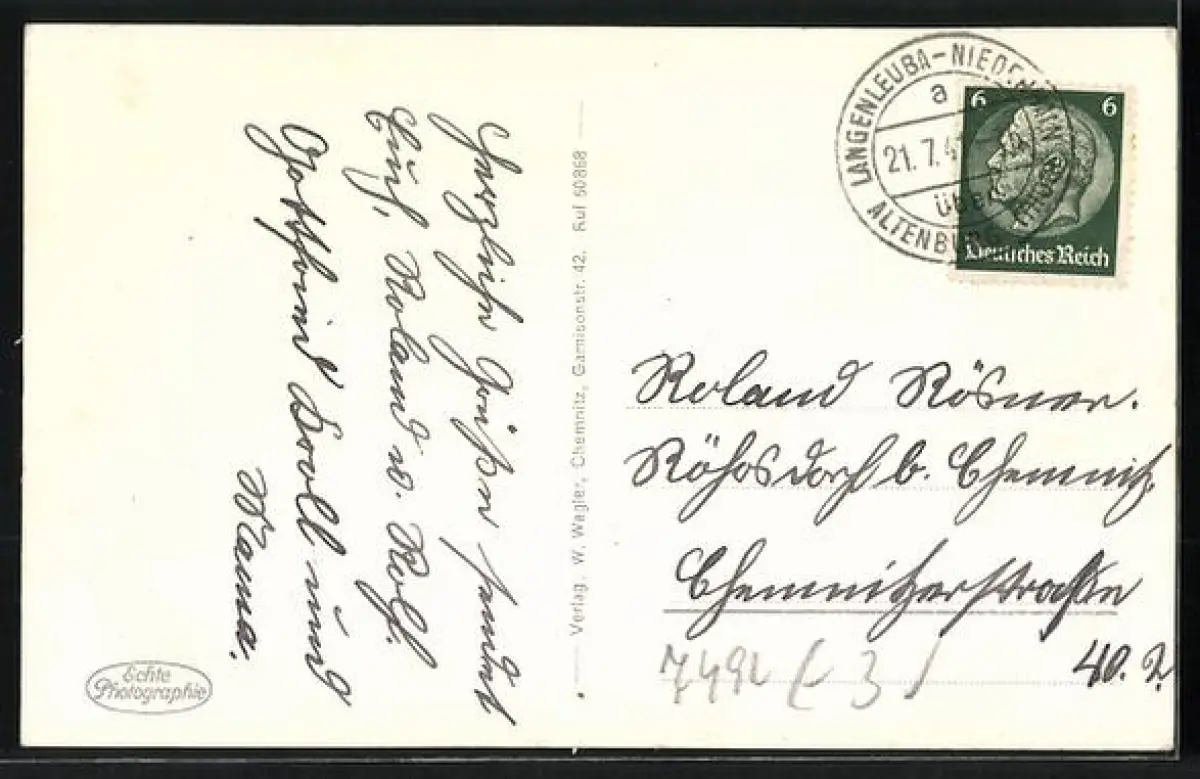 Herzliche Grüße sendet
Euch, Roland u. Rolf.
Gottfried Boell und
Mama.
Echte
Photographie
Verlag. W. Wagler, Chemnitz, Garnisonstr. 42. Ruf 60868
LANGENLEUBA-NIEDERHAIN
a
21.7.4
über
ALTENBURG (THÜR)
6 6
Deutsches Reich
Roland Rösner.
Röhrsdorf b. Chemnitz.
Chemnitzerstraße
40.